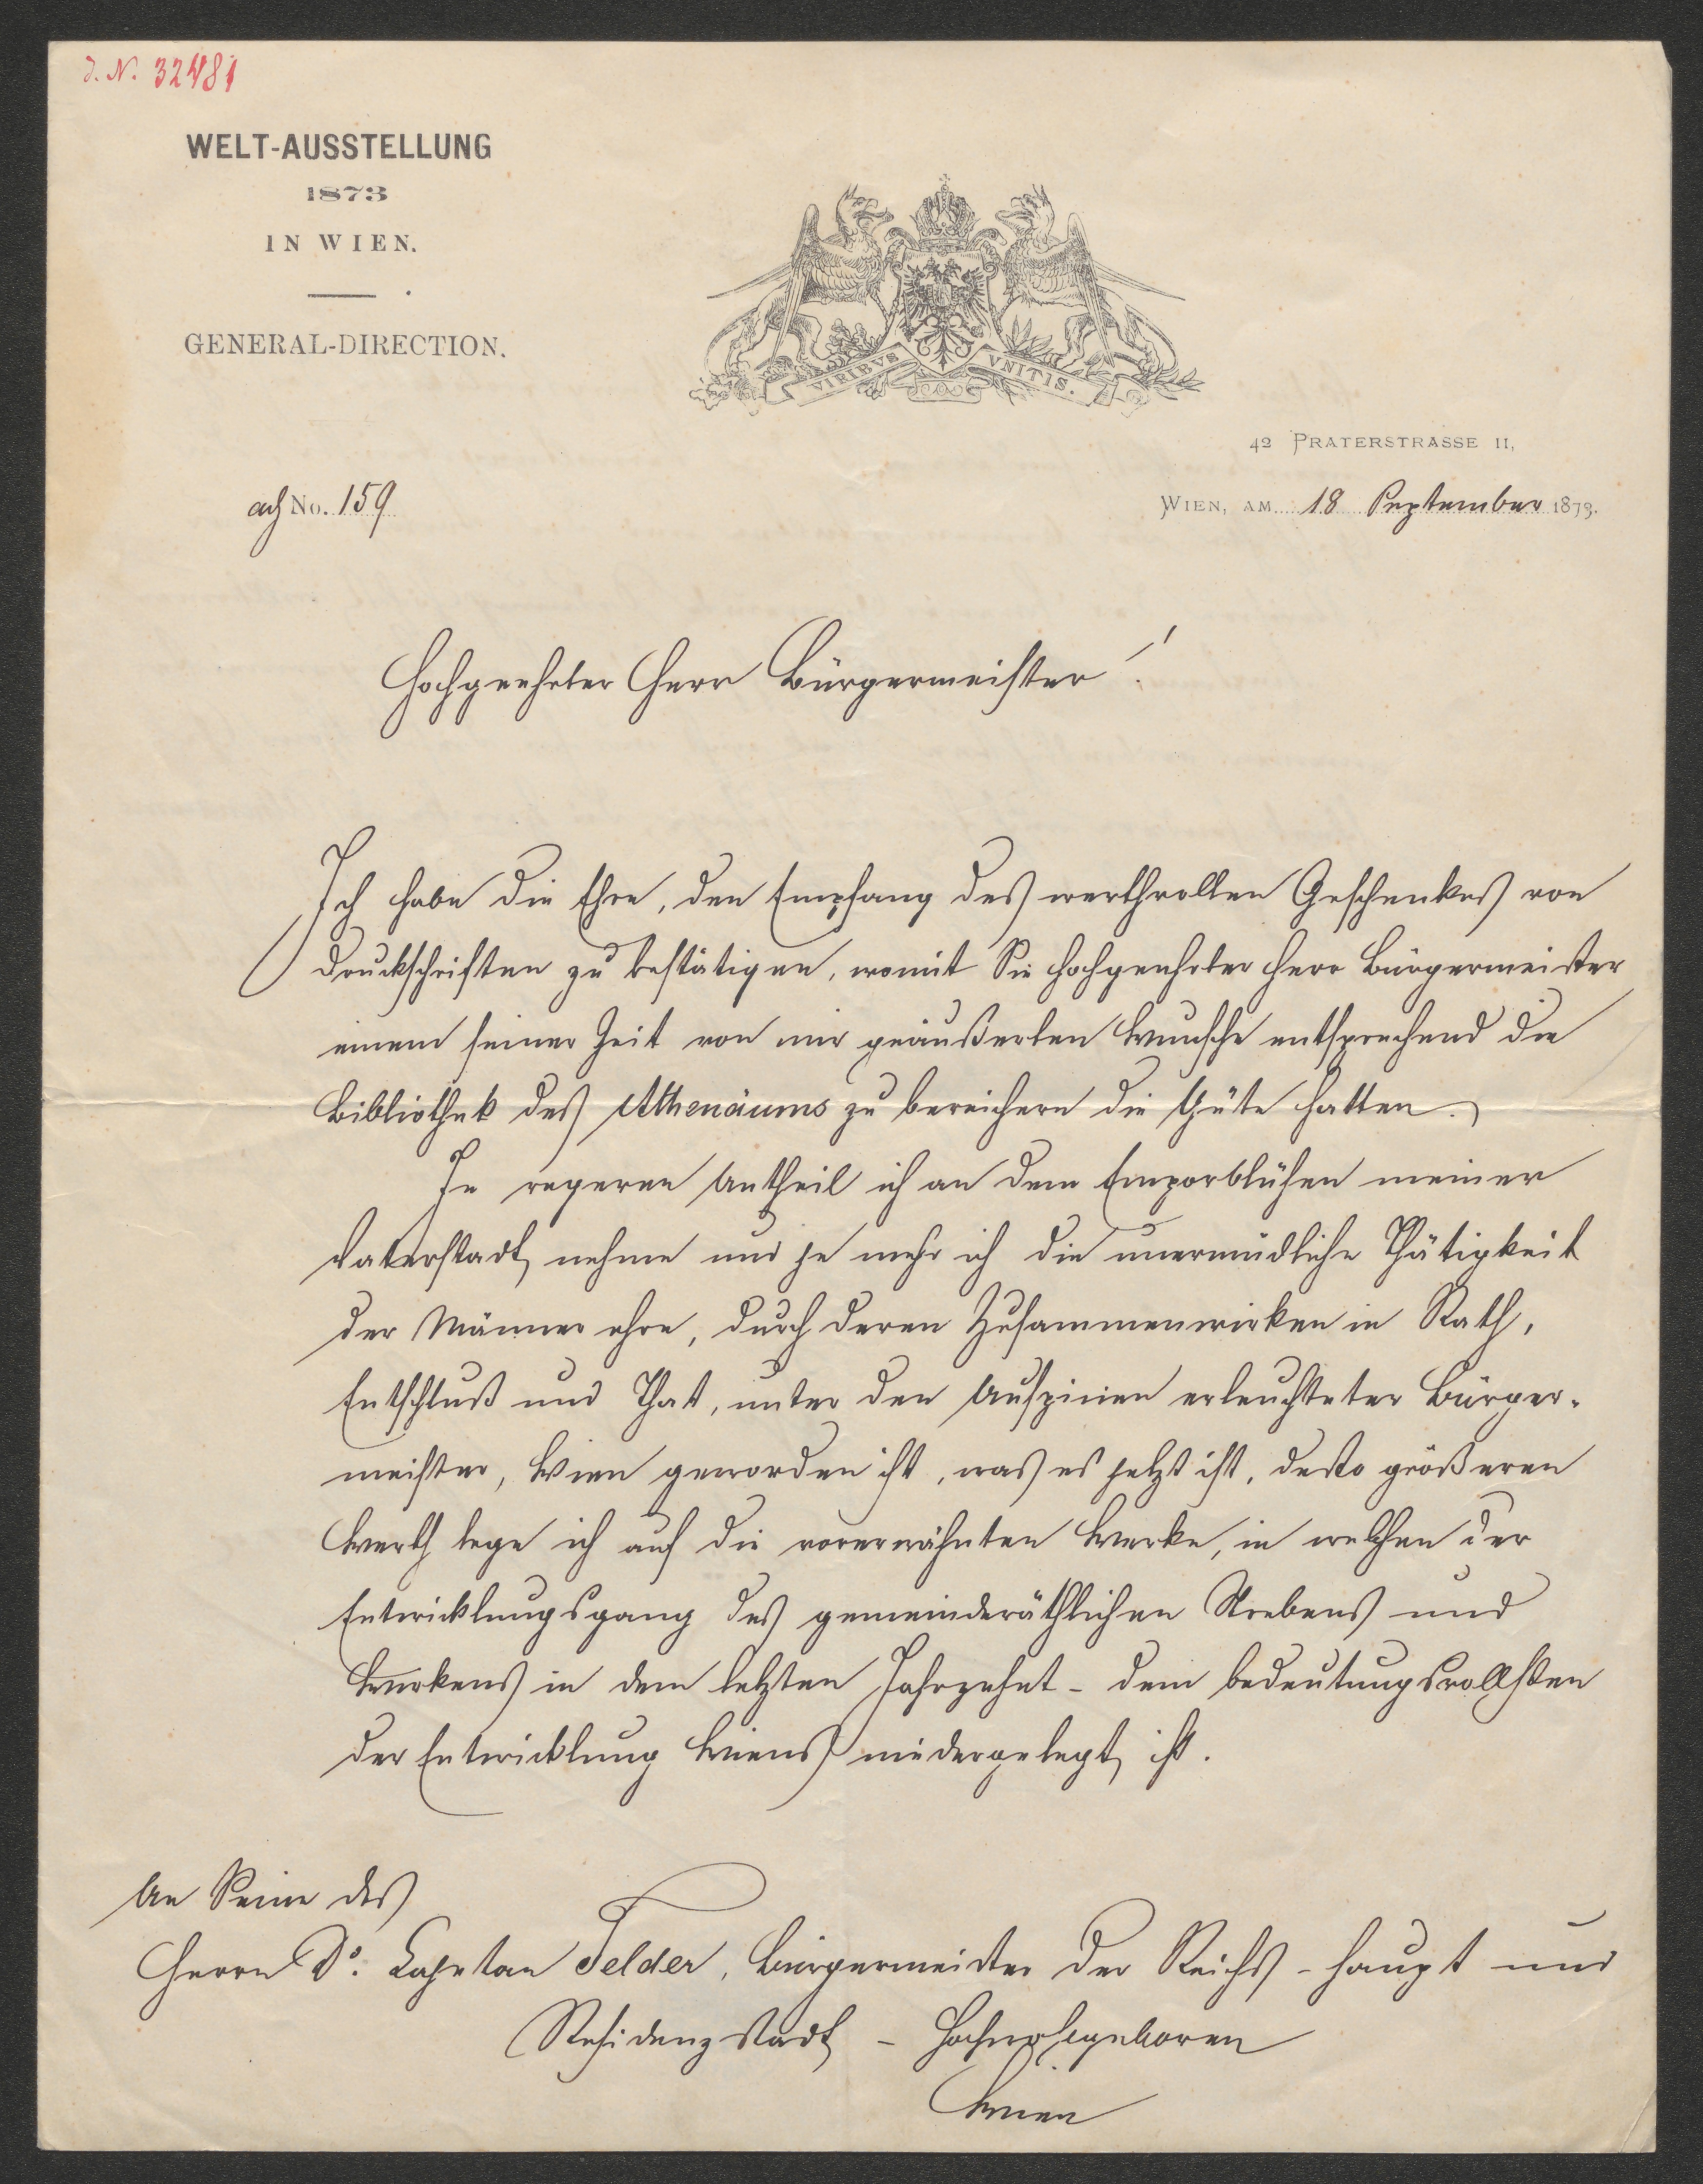 J. N. 32481
WELT-AUSSTELLUNG
1873
IN WIEN.
GENERAL-DIRECTION.
VIRIBVS VNITIS.
42 PRATERSTRASSE II,
ad No. 159
WIEN, AM 18 September 1873.
Hochgeehrter Herr Bürgermeister!
Ich habe die Ehre, den Empfang des werthvollen Geschenkes von
Druckschriften zu bestätigen, womit Sie hochgeehrter Herr Bürgermeister
einem seiner Zeit von mir geäußerten Wunsche entsprechend die
Bibliothek des Athenäums zu bereichern die Güte hatten.
Je regeren Antheil ich an dem Emporblühen meiner
Vaterstadt nehme und je mehr ich die unermüdliche Thätigkeit
der Männer ehre, durch deren Zusammenwirken in Rath,
Entschluß und That, unter den Auspicien erleuchteter Bürger-
meister, Wien geworden ist, was es jetzt ist, desto größeren
Werth lege ich auf die vorerwähnten Werke, in welchen der
Entwicklungsgang des gemeinderäthlichen Strebens und
Wirkens in dem letzten Jahrzehnt - dem bedeutungsvollsten
der Entwicklung Wiens niedergelegt ist.
An Seine des
Herrn Dr. Cajetan Felder, Bürgermeister der Reichs-Haupt und
Residenzstadt - Hochwohlgeboren
Wien